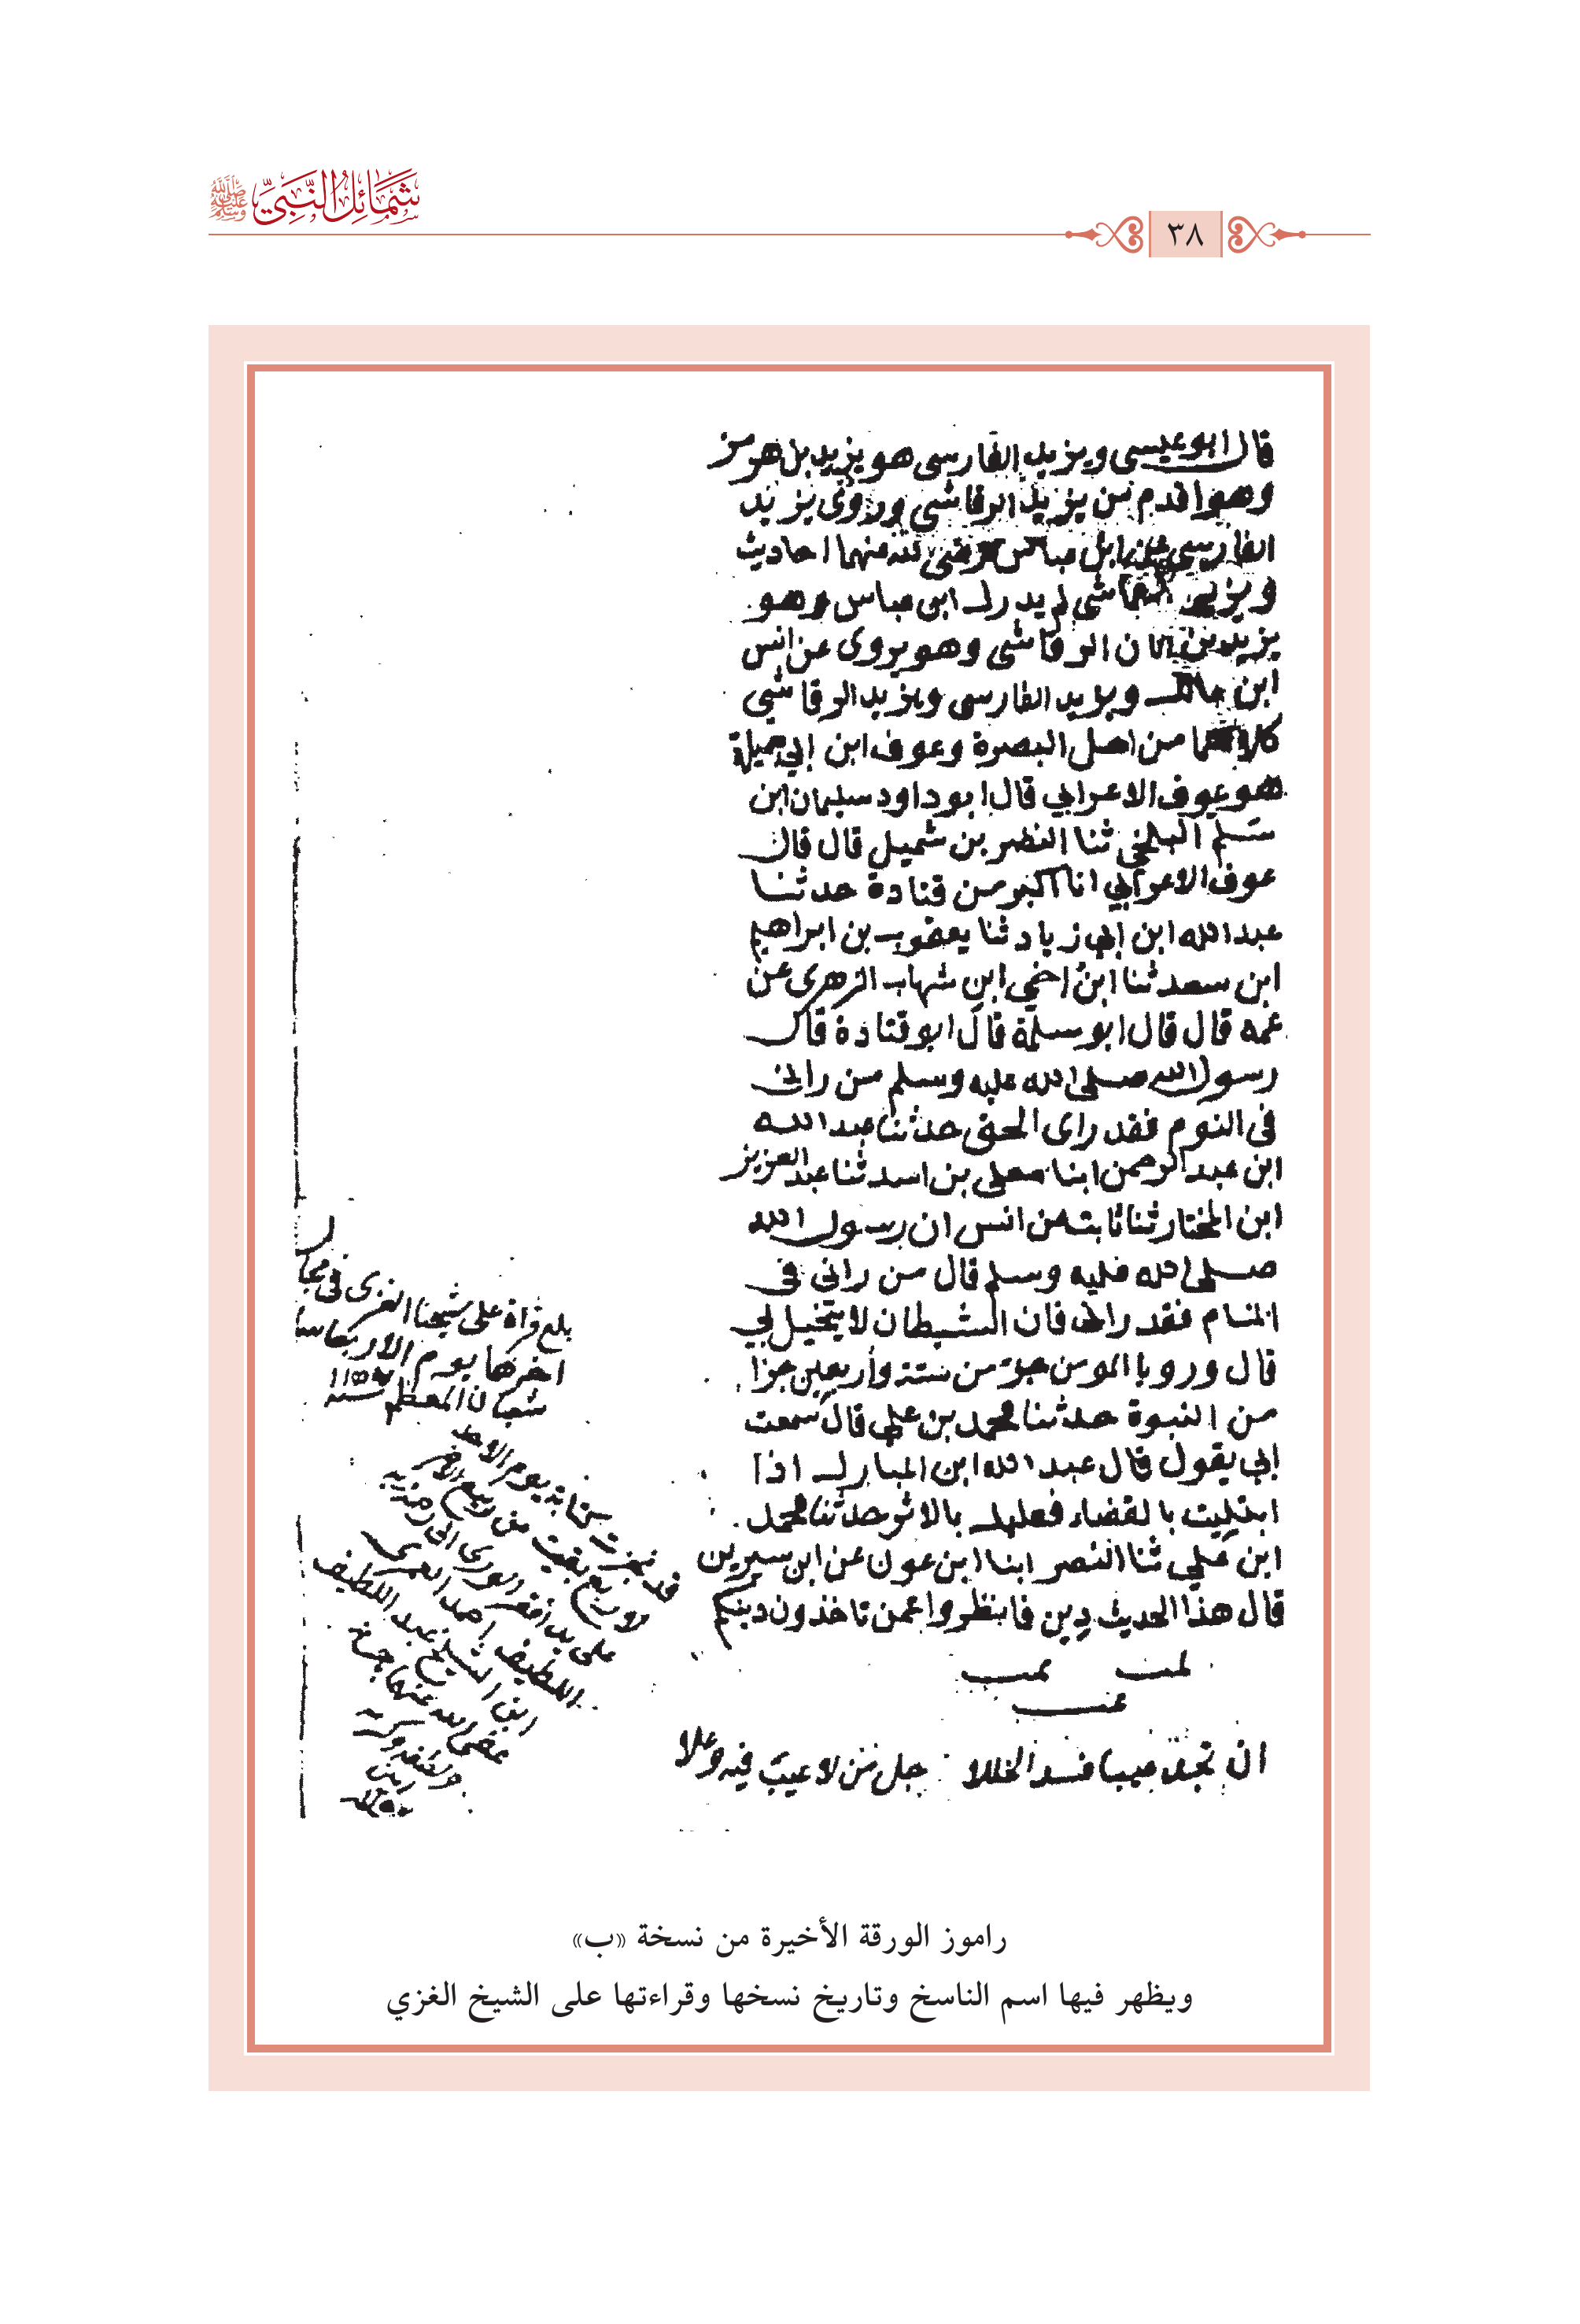 شمائل النبي ﷺ
٣٨
قال ابو عيسى ويزيد الفارسي هو يزيد بن هرمز
وهو اقدم من يزيد الرقاشي وروى يزيد
الفارسي عن ابن عباس رضي الله عنهما احاديث
ويزيد الرقاشي لم يدرك ابن عباس وهو
يزيد بن ابان الرقاشي وهو يروي عن انس
ابن مالك ويزيد الفارسي ويزيد الرقاشي
كلاهما من اهل البصرة وعوف ابن ابي جميلة
هو عوف الاعرابي قال ابو داود سليمان ابن
سلم البلخي ثنا النضر بن شميل قال قال
عوف الاعرابي انا اكبر من قتادة حدثنا
عبد الله ابن ابي زياد ثنا يعقوب بن ابراهيم
ابن سعد ثنا ابن اخي ابن شهاب الزهري عن
عمه قال قال ابو سلمة قال ابو قتادة قال
رسول الله صلى الله عليه وسلم من راني
في النوم فقد راى الحق حدثنا عبد الله
ابن عبد الرحمن ابنا معلى بن اسد ثنا عبد العزيز
ابن المختار ثنا ثابت عن انس ان رسول الله
صلى الله عليه وسلم قال من راني في
المنام فقد راني فان الشيطان لا يتخيل بي
قال ورويا المومن جزء من ستة واربعين جزا
من النبوة حدثنا محمد بن علي قال سمعت
ابي يقول قال عبد الله ابن المبارك اذا
ابتليت بالقضاء فعليك بالاثر حدثنا محمد
ابن علي ثنا النضر ابنا ابن عون عن ابن سيرين
قال هذا الحديث دين فانظروا عمن تاخذون دينكم
تمت تمت
تمت
ان تجد عيبا فسد الخللا جل من لا عيب فيه وعلا
بلغ قراة على شيخنا الغزي في
اخرها يوم الاربعا
شعبان المعظم سنة
يوم الاحد
بقيت من ربيع الاخر
على يد افقر الورى الى
اللطيف احمد العمري
ابن الشيخ عبد اللطيف
عفى الله عنهما
امين
راموز الورقة الأخيرة من نسخة «ب»
ويظهر فيها اسم الناسخ وتاريخ نسخها وقراءتها على الشيخ الغزي